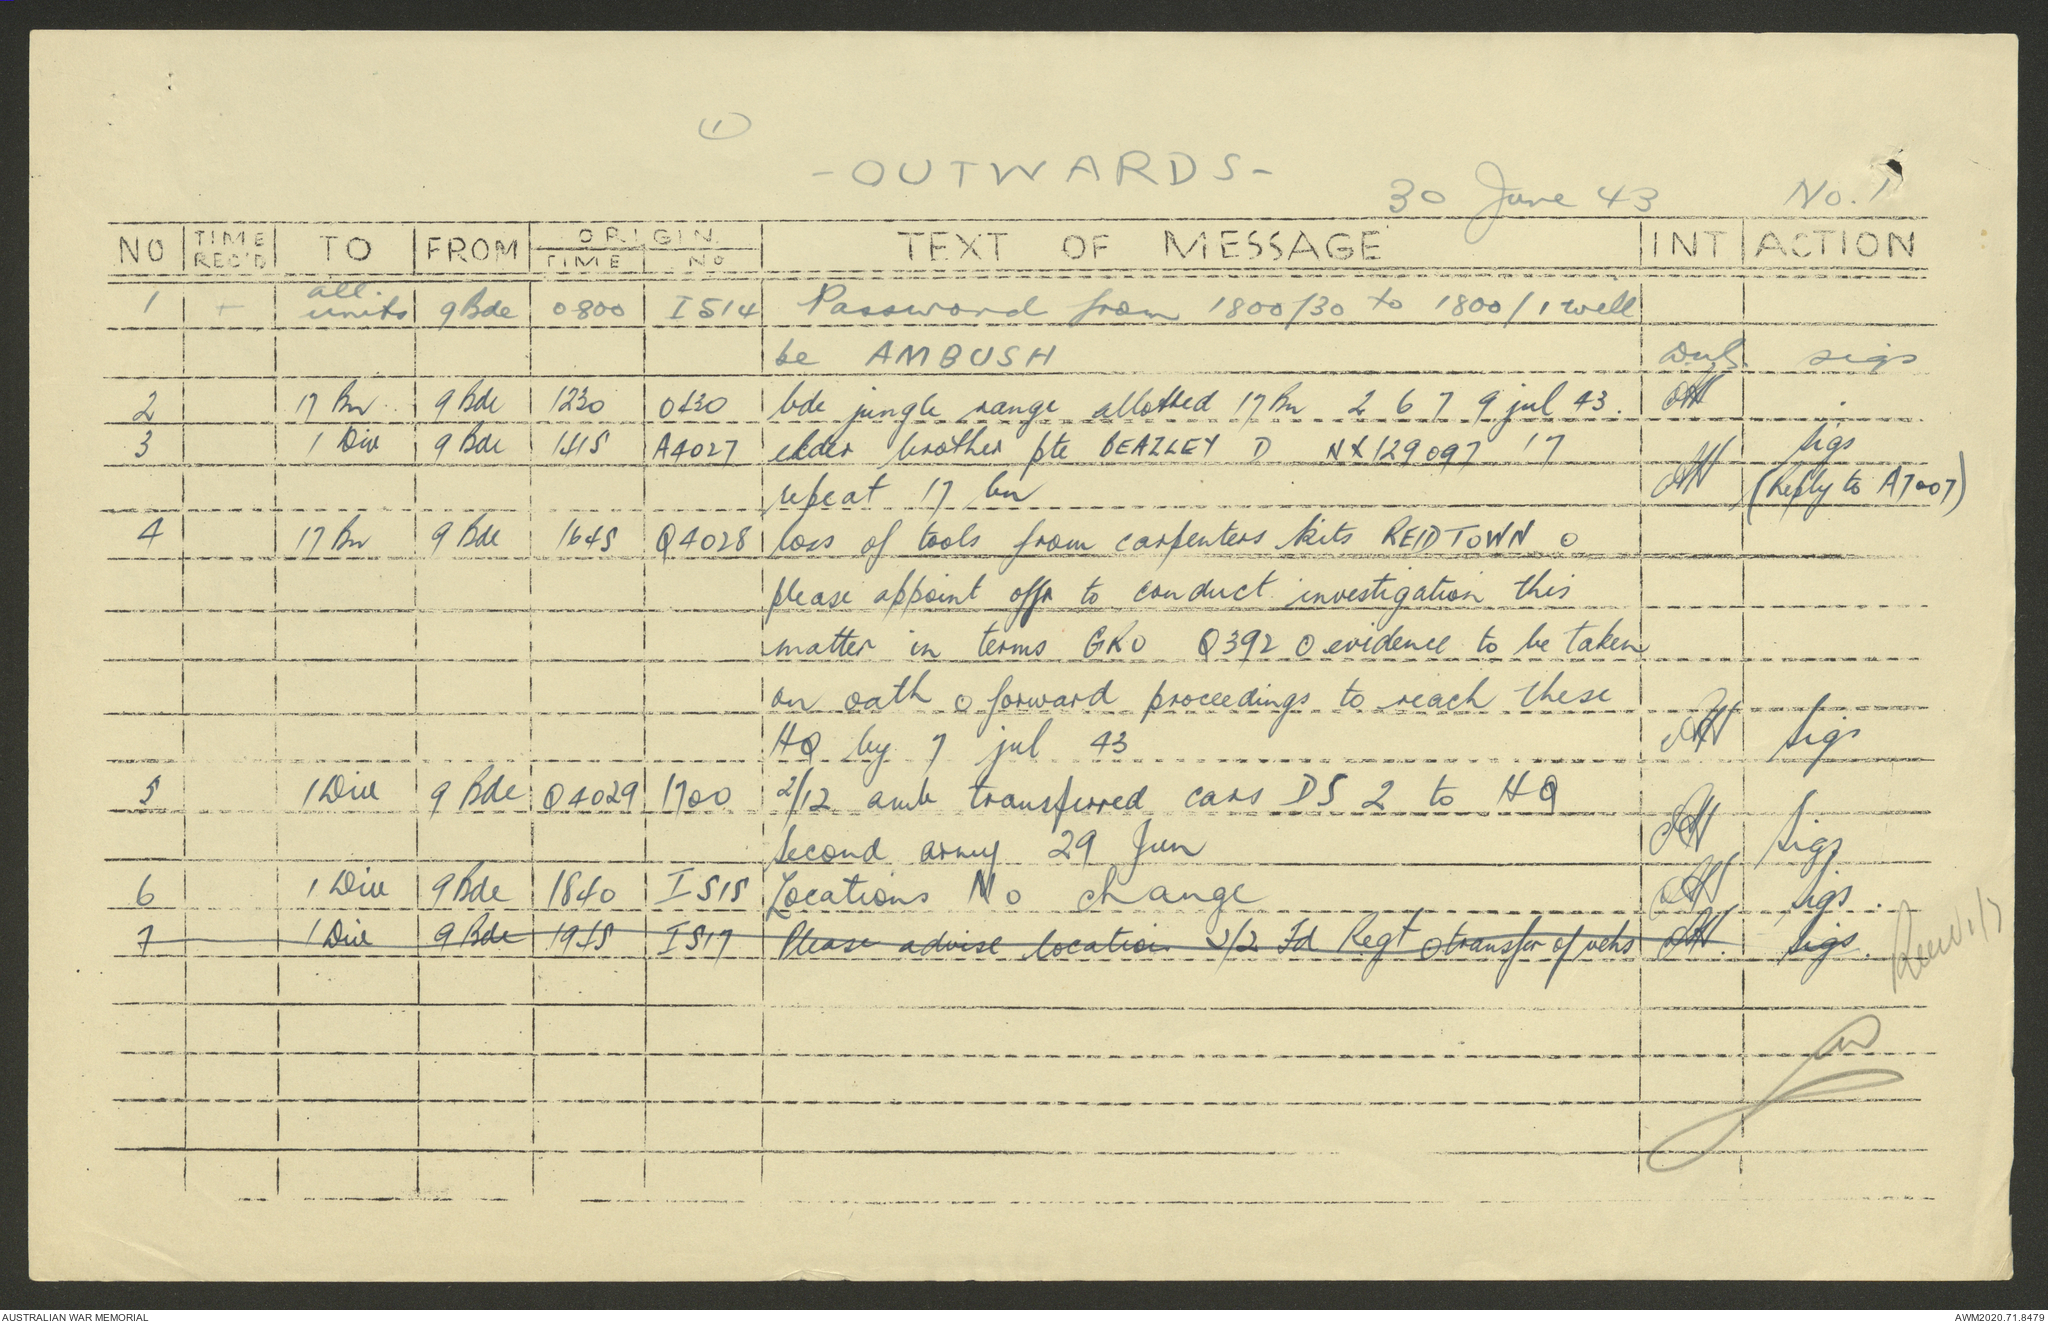 (1)
- OUTWARDS -
30 June 43 No. 1
NO TIME REC'D TO FROM ORIGIN TIME NO TEXT OF MESSAGE INT ACTION
1 + all units 9 Bde 0800 I514 Password from 1800/30 to 1800/1 will
be AMBUSH sigs
2 17 Bn 9 Bde 1230 O430 bde jungle range allotted 17 Bn 2 6 7 9 jul 43.
3 1 Div 9 Bde 1415 A4027 elder brother pte BEAZLEY D NX129097 17 Sigs
repeat 17 bn (Reply to A7007)
4 17 Bn 9 Bde 1645 Q4028 loss of tools from carpenters kits REIDTOWN o
please appoint offr to conduct investigation this
matter in terms GRO Q392 o evidence to be taken
on oath o forward proceedings to reach these
HQ by 7 jul 43 Sigs
5 1 Div 9 Bde Q4029 1700 2/12 amb transferred cars DS 2 to HQ
Second army 29 Jun Sigs
6 1 Div 9 Bde 1840 I515 Locations No change Sigs.
7 1 Div 9 Bde 1945 I517 Please advise location 2/2 Fd Regt o transfer of vehs Sigs.
AUSTRALIAN WAR MEMORIAL AWM2020.71.8479